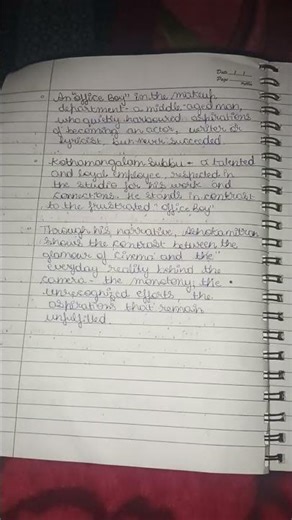 Date __/__/__
Page
• An "office Boy" in the makeup
department - a middle-aged man,
who quitly harboured aspirations
of becoming an actor, writer or
lyricist, but never succeeded.
• Kothamangalam Subbu - a talented
and loyal employee, respected in
the studio for his work and
connections. He stands in contrast
to the frustrated "office Boy"
• Through his narrative, Ashokamitran
shows the contrast between the
glamour of cinema and the
everyday reality behind the
camera - the monotony, the
unrecognized efforts, the
aspirations that remain
unfulfilled.